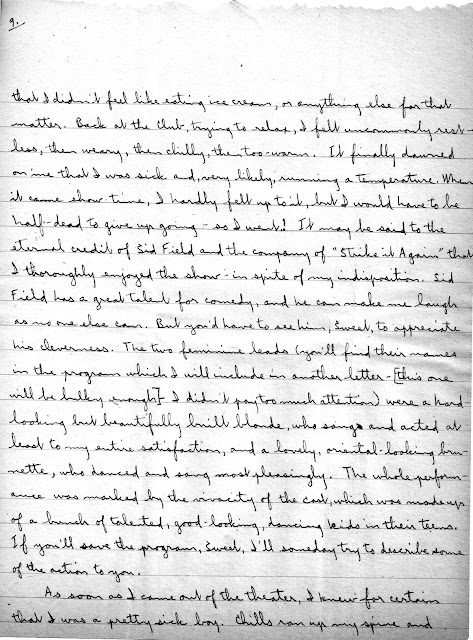 9.
that I didn't feel like eating ice cream, or anything else for that
matter. Back at the Club, trying to relax, I felt uncommonly rest-
less, then weary, then chilly, then too-warm. It finally dawned
on me that I was sick and, very likely, running a temperature. When
it came show-time, I hardly felt up to it, but I would have to be
half-dead to give up going - so I went! It may be said to the
eternal credit of Sid Field and the company of "Strike it Again" that
I thoroughly enjoyed the show - in spite of my indisposition. Sid
Field has a great talent for comedy, and he can make me laugh
as no one else can. But you'd have to see him, Sweet, to appreciate
his cleverness. The two feminine leads (you'll find their names
in the program which I will include in another letter - [this one
will be bulky enough] - I didn't pay too much attention) were a hard-
looking but beautifully built blonde, who sang and acted at
least to my entire satisfaction, and a lovely, oriental-looking bru-
nette, who danced and sang most pleasingly. The whole perform-
ance was marked by the vivacity of the cast, which was made up
of a bunch of talented, good-looking, dancing kids in their teens.
If you'll save the program, Sweet, I'll someday try to describe some
of the action to you.
As soon as I came out of the theater, I knew for certain
that I was a pretty sick boy. Chills ran up my spine and